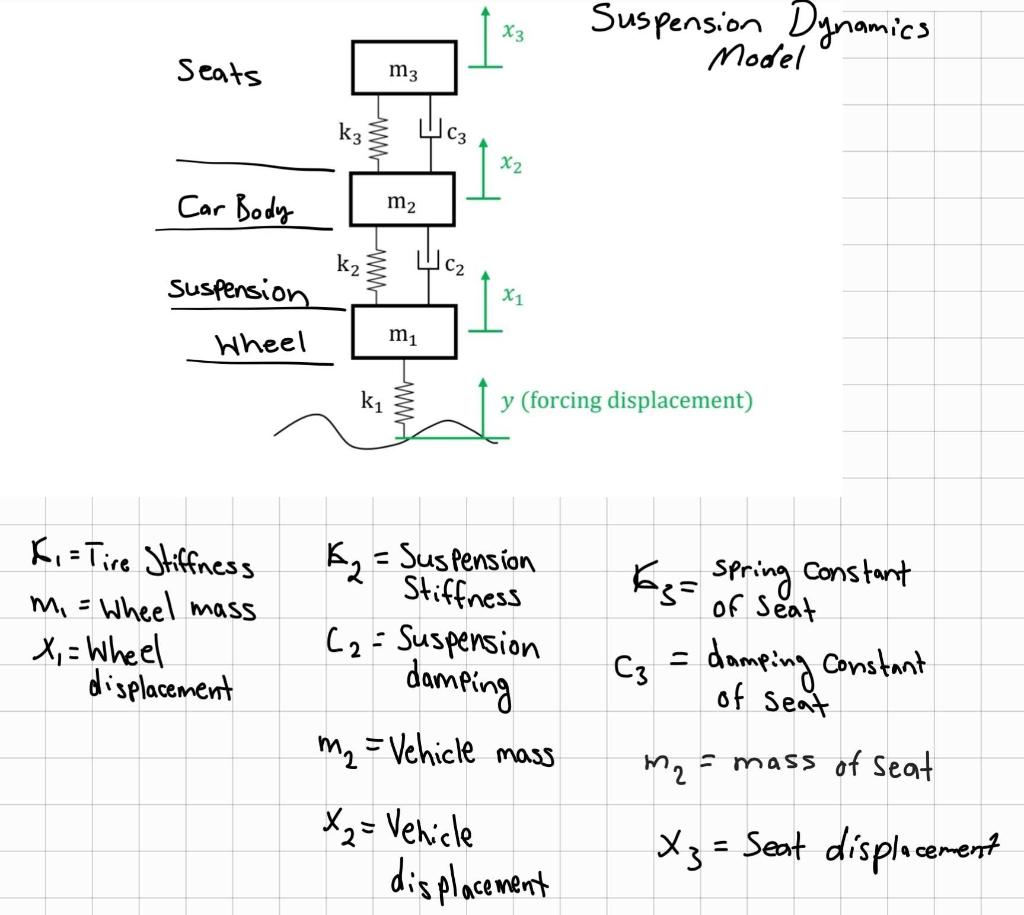 Suspension Dynamics
Model
x₃
Seats
m₃
k₃
c₃
x₂
Car Body
m₂
k₂
c₂
Suspension
x₁
Wheel
m₁
k₁
y (forcing displacement)
K₁ = Tire Stiffness
m₁ = Wheel mass
X₁ = Wheel
displacement
K₂ = Suspension
Stiffness
C₂ = Suspension
damping
m₂ = Vehicle mass
X₂ = Vehicle
displacement
K₃ = Spring Constant
of Seat
C₃ = damping Constant
of Seat
m₂ = mass of Seat
X₃ = Seat displacement